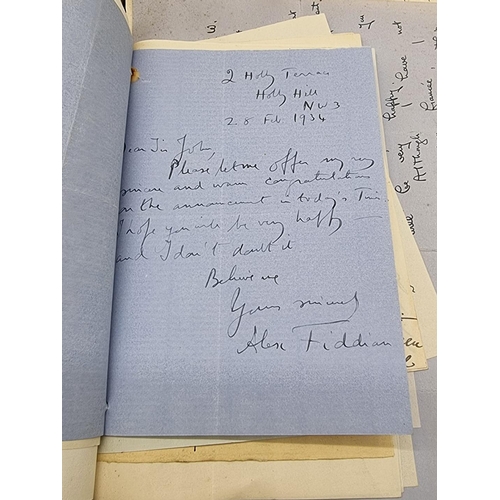 2 Holly Terrace
Holly Hill
NW3
28 Feb 1934
Dear Sir John,
Please let me offer my very
sincere and warm congratulations
on the announcement in today's Times.
I hope you will be very happy —
and I don't doubt it
Believe me
Yours sincerely
Alex Fiddian
happy
I have
not
be very
Although
fiancée,